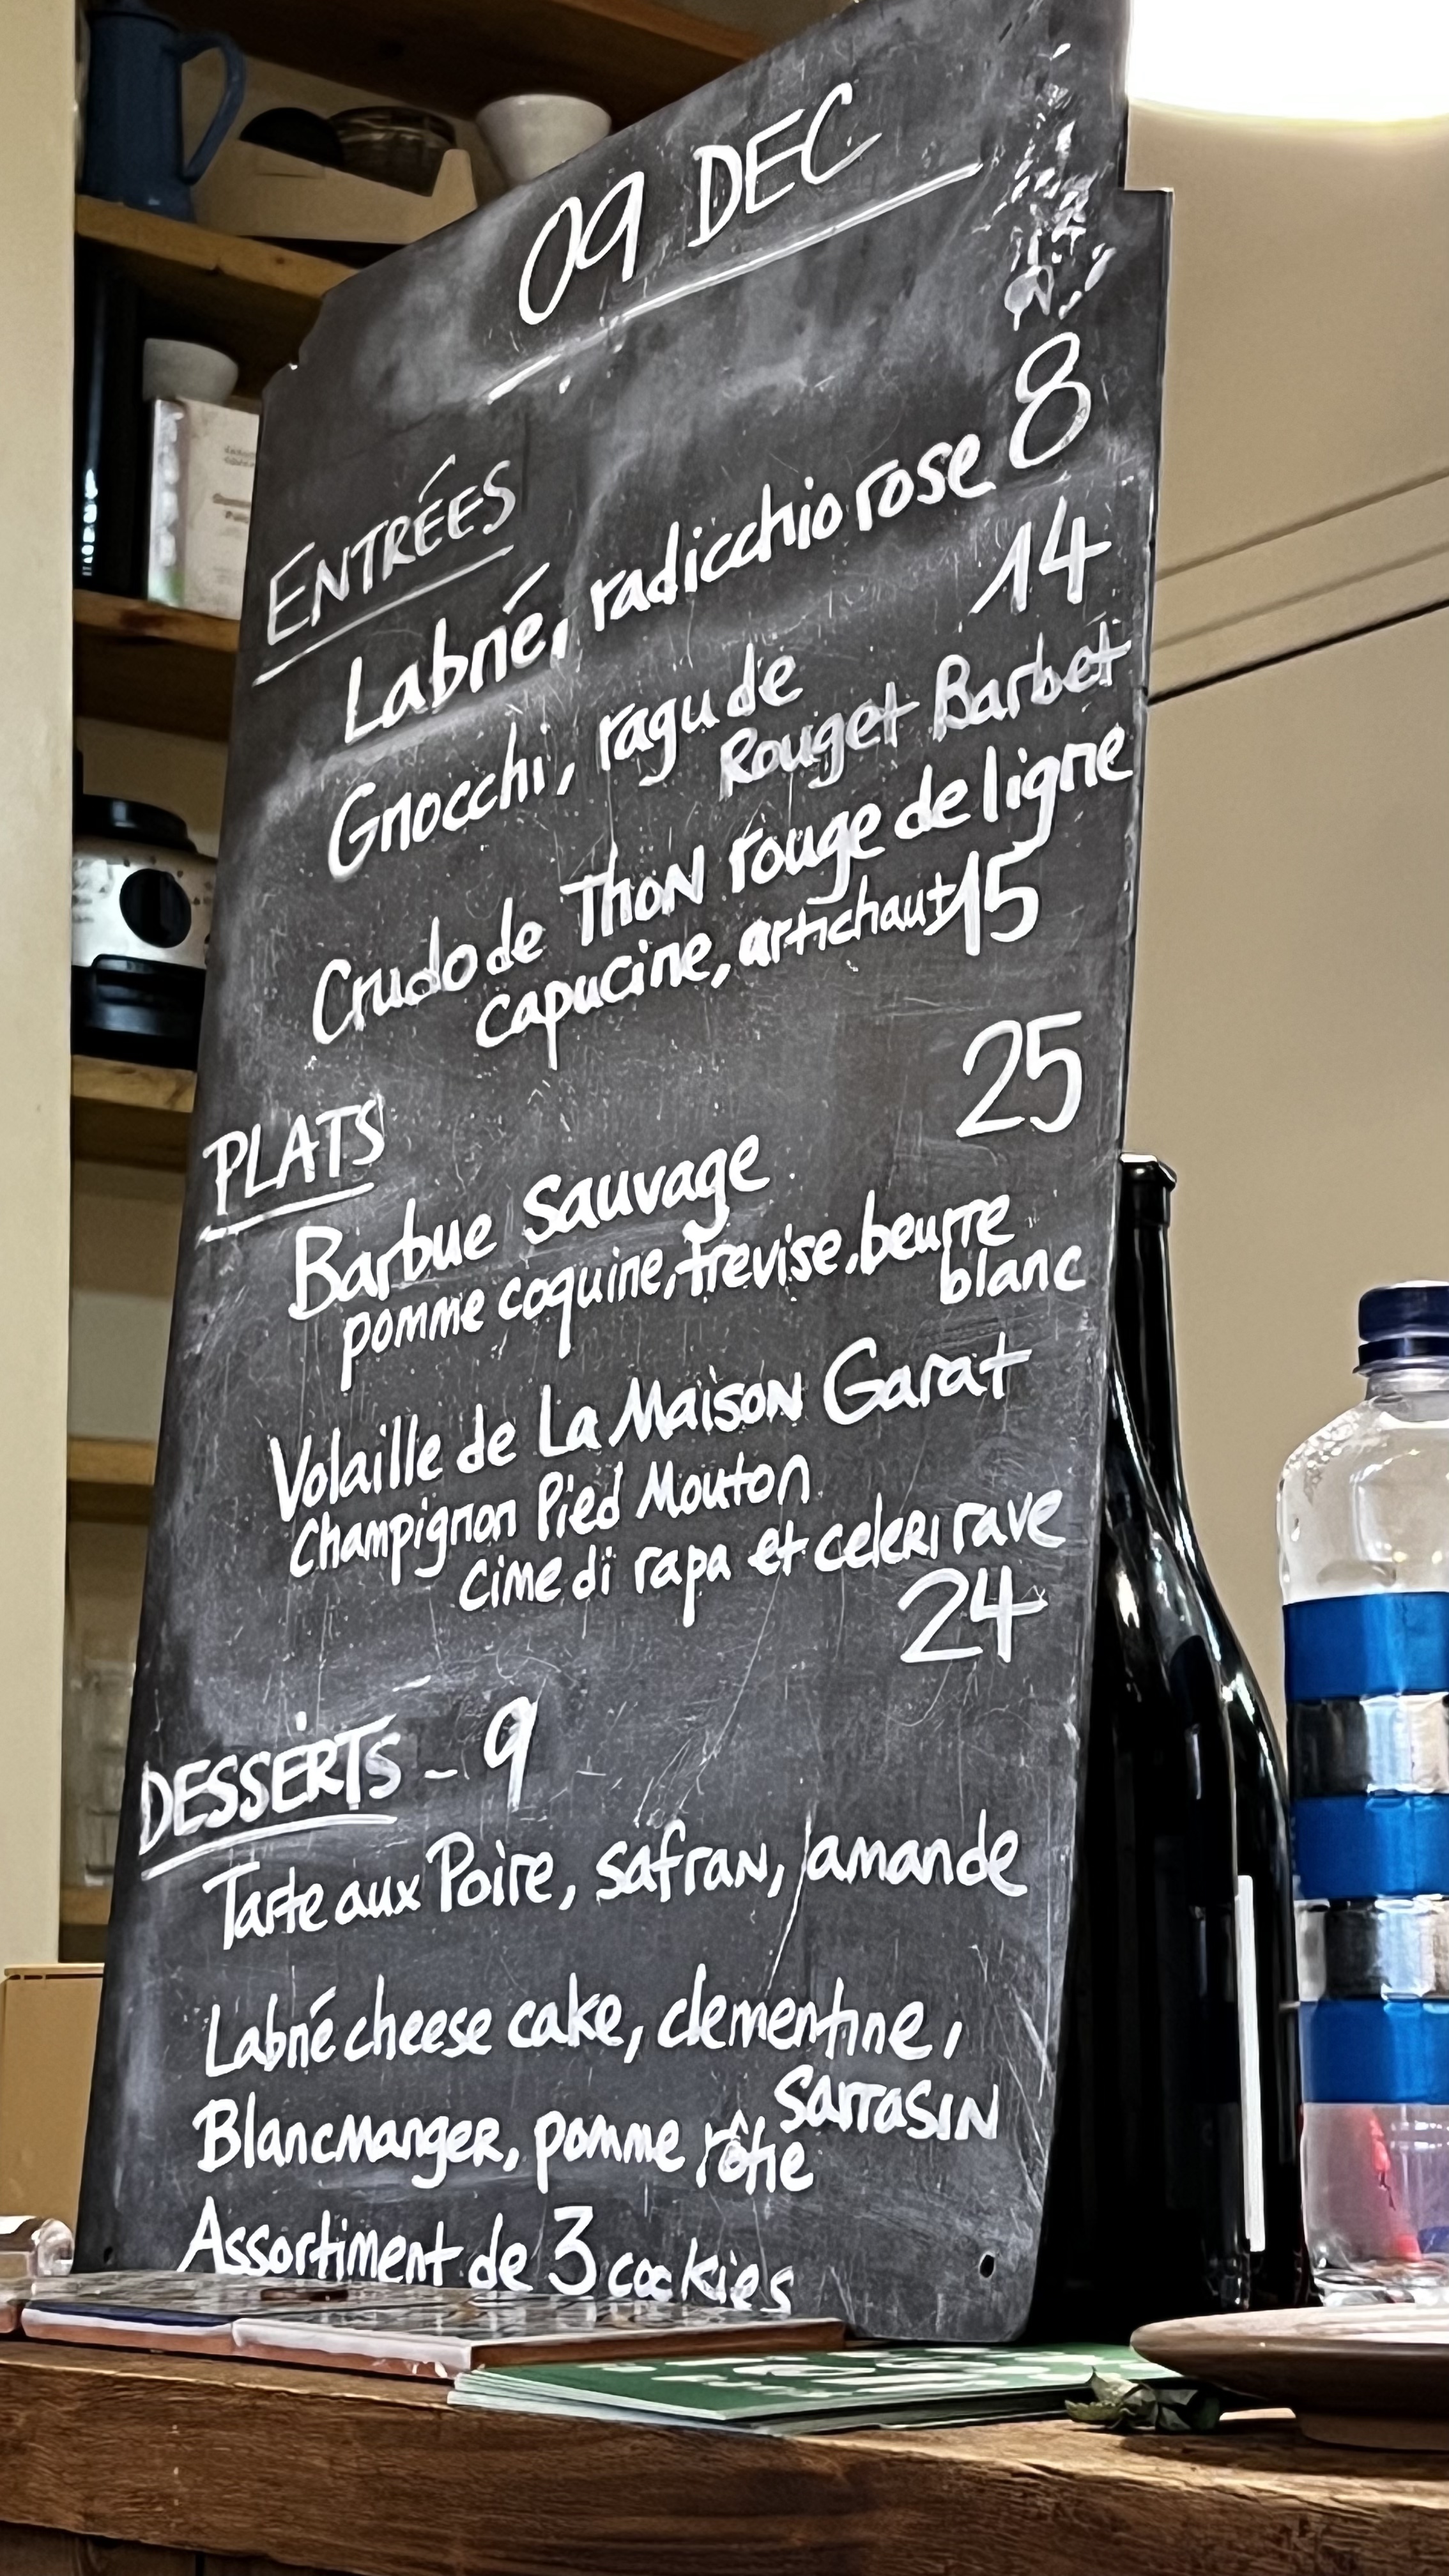 09 DEC
ENTRÉES
Labné, radicchio rose 8
14
Gnocchi, ragu de
Rouget Barbet
Crudo de Thon rouge de ligne
capucine, artichaut 15
PLATS
25
Barbue Sauvage
pomme coquine, trevise, beurre
blanc
Volaille de La Maison Garat
Champignon Pied Mouton
cime di rapa et celeri rave
24
DESSERTS - 9
Tarte aux Poire, safran, amande
Labné cheese cake, clementine,
sarrasin
Blancmanger, pomme rôtie
Assortiment de 3 cookies